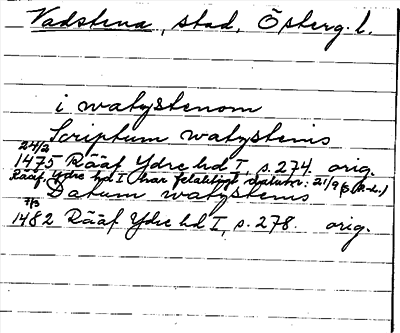 Vadstena, stad, Österg. l.
i watystenom
Scriptum watystenis
24/2
1475 Rääf Ydre hd I, s. 274. orig.
Rääf, Ydre hd I har felaktigt datum: 21/9
Datum watystenis
7/3
1482 Rääf Ydre hd I, s. 278. orig.